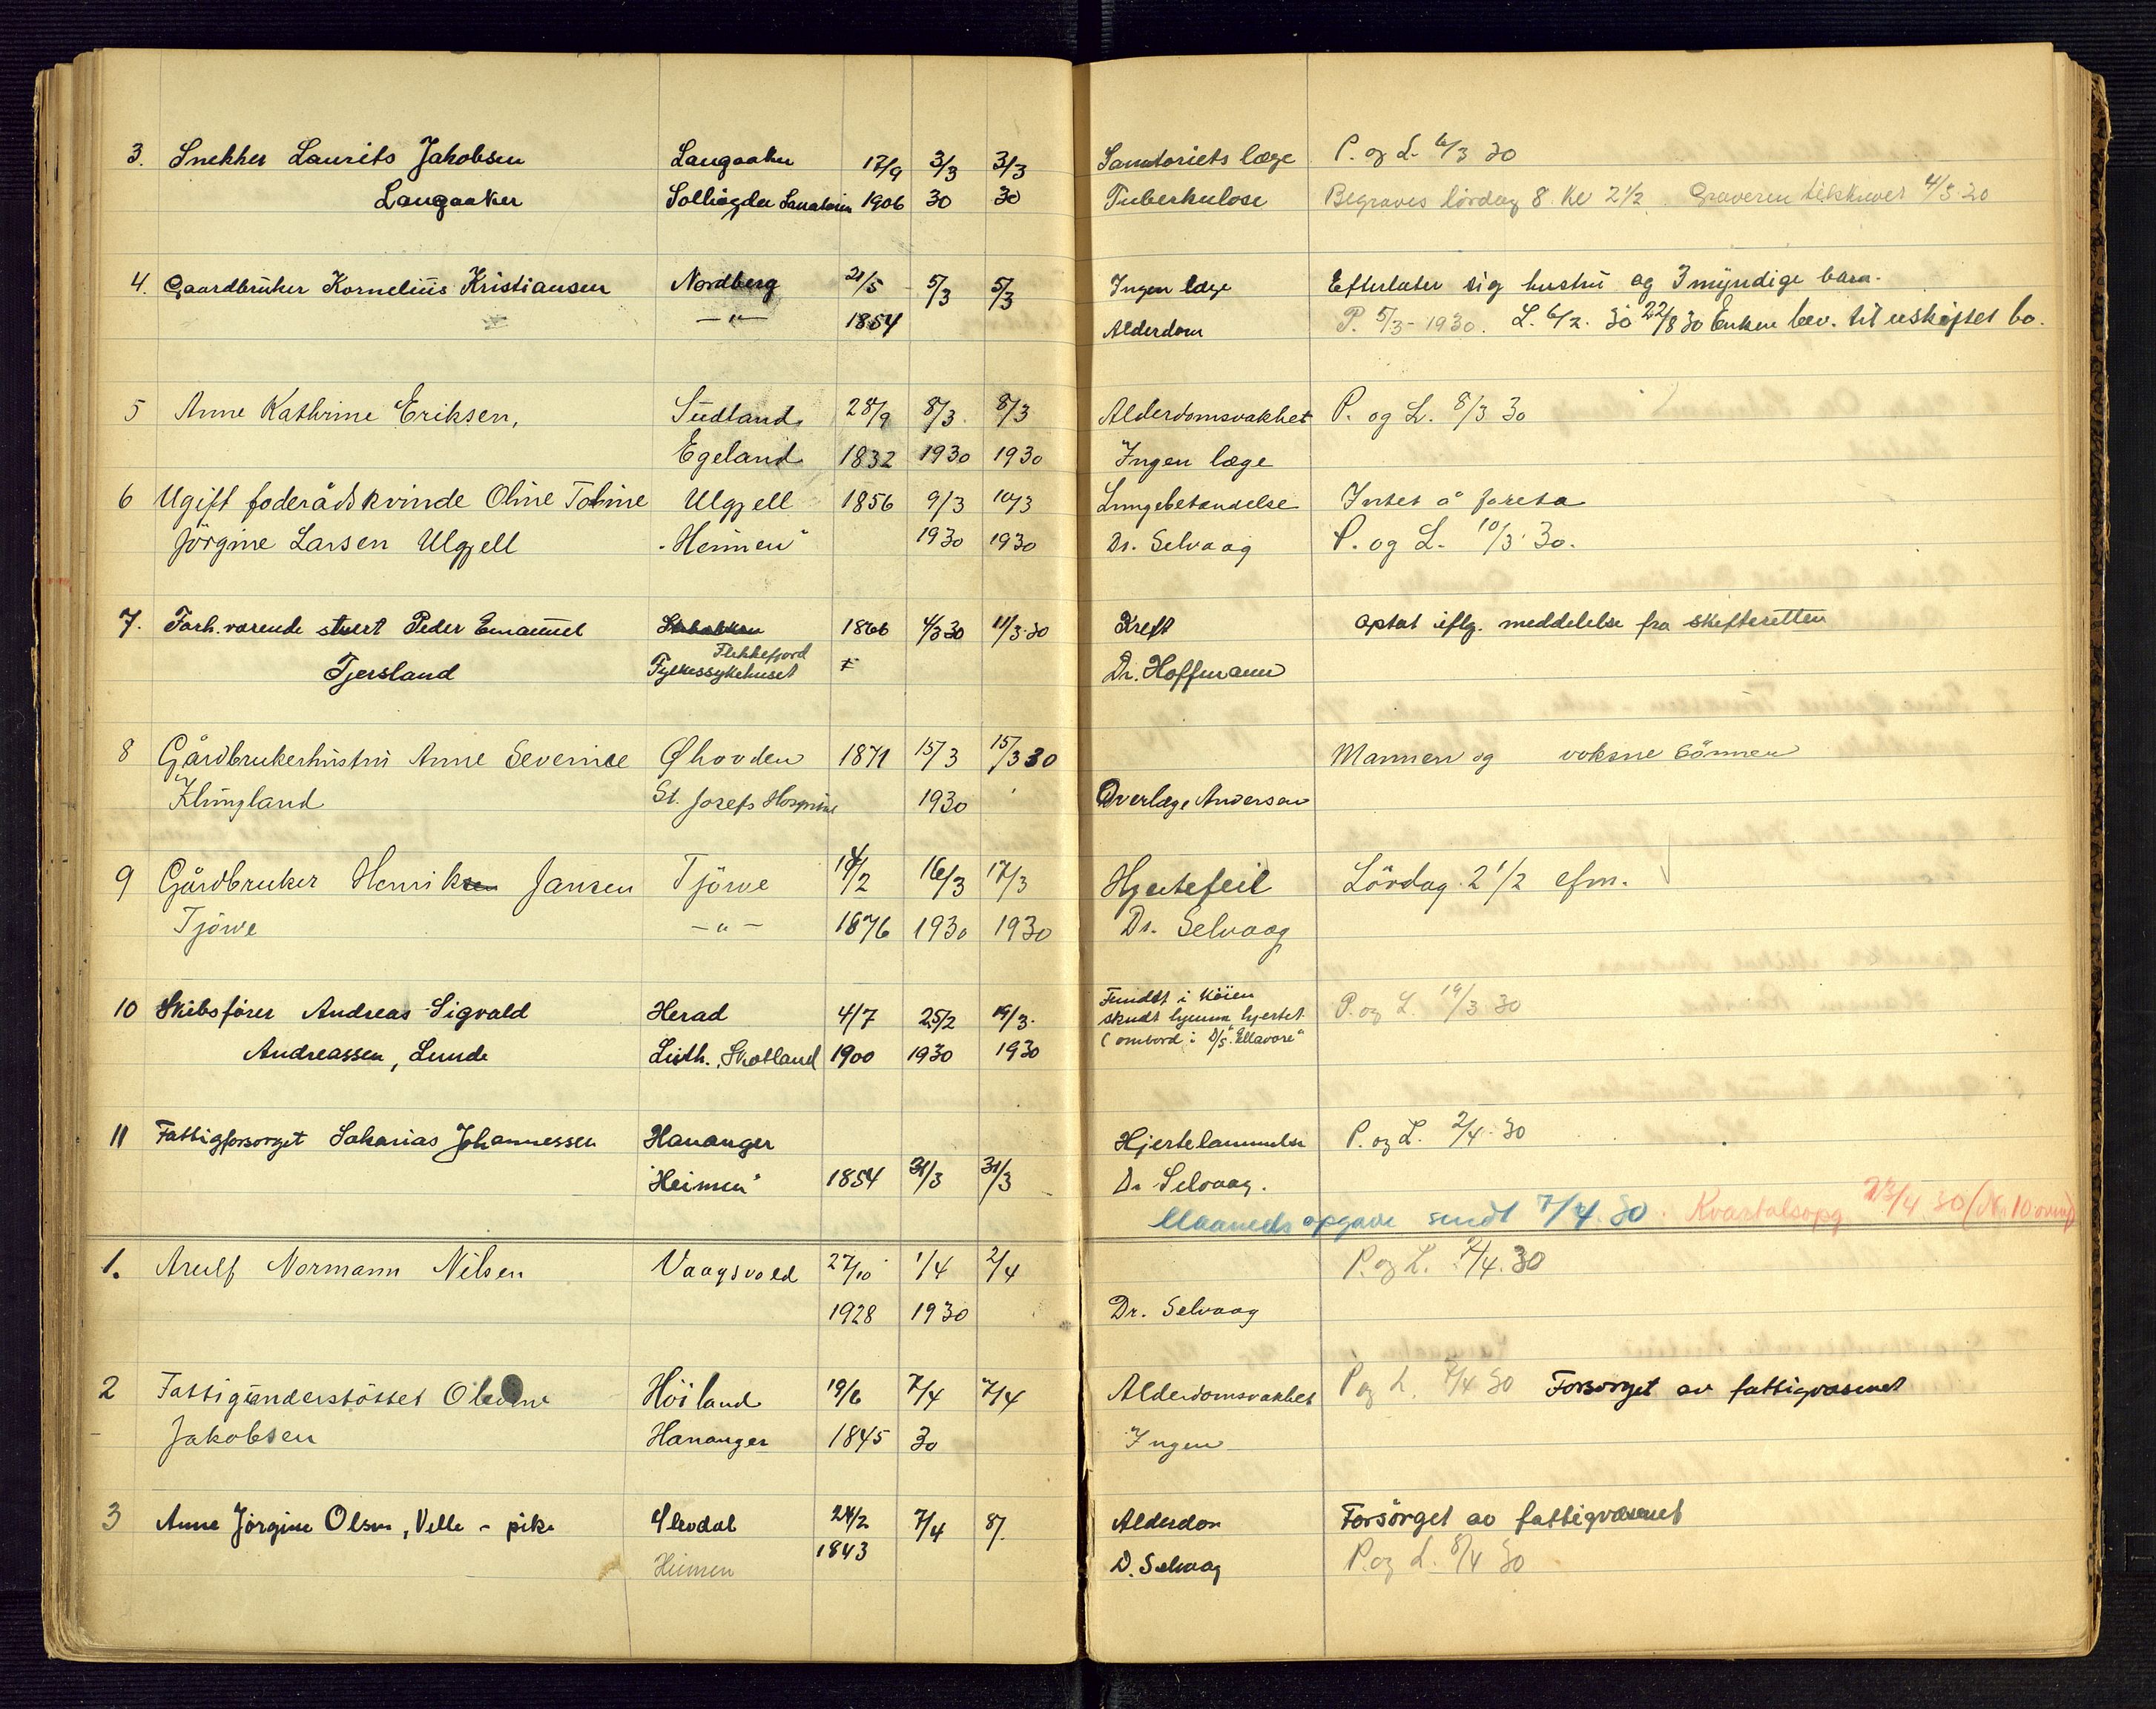 3. Snekker Laurits Jakobsen Langaaker 17/9 3/3 3/3 Sanatoriets læge P. og L. 6/3 30
Langaaker Solhøgda Sanatorium 1906 30 30 Tuberkulose Begraves lördag 8. Kl 2 1/2. Graveren tilskrevet 4/3 30
4. Gaardbruker Kornelius Kristiansen Nordberg 21/5 5/3 5/3 Ingen læge Efterlater sig hustru og 3 myndige barn.
— " — 1854 Alderdom P. 5/3 - 1930. L. 6/3. 30 22/8 30 Enken bev. til uskiftet bo.
5 Anne Kathrine Eriksen, Sudland 28/9 8/3 8/3 Alderdomsvakhet P. og L. 8/3 30
Egeland 1832 1930 1930 Ingen læge
6 Ugift foderådskvinde Oline Tobine Ulgjell 1856 9/3 10/3 Lungebetændelse Intet å foreta
Jörgine Larsen Ulgjell "Heimen" 1930 1930 Dr. Selvaag P. og L. 10/3 30.
7. Forh. varende stuert Peder Emanuel 1866 4/3 30 11/3 30 Kreft Optat iflg. meddelelse fra skifteretten
Flekkefjord
Tjersland Fylkessykehuset Dr. Hoffmann
8 Gårdbrukerhustru Anne Severine Øhovden 1871 15/3 15/3 30 Mannen og voksne börnen
Klungland St. Josefs Hospital 1930 Overlæge Andersen
9 Gårdbruker Henriksen Jansen Tjörve 14/2 16/3 17/3 Hjertefeil Lördag 2 1/2 efm.
Tjörve — " — 1876 1930 1930 Dr. Selvaag
10 Skibsförer Andreas Sigvald Herad 4/7 25/2 19/3 Fundet i köien P. og L. 19/3 30
skudt gjennem hjertet
Andreassen, Lunde Leith, Skotland 1900 1930 1930 (ombord i D/S "Ellavore"
11 Fattigforsorget Sakarias Johannessen Hananger Hjertelammelse P. og L. 2/4 30
"Heimen" 1854 31/3 31/3 Dr Selvaag.
Maaneds opgave sendt 7/4 30. Kvartalsopg 23/4 30 (Nr 10
1. Arulf Normann Nilsen Vaagsvold 27/10 1/4 2/4 P. og L. 2/4. 30
1928 1930 Dr. Selvaag
2 Fattigunderstöttet Höiland 19/6 7/4 7/4 Alderdomsvakhet P og L. 7/4 30 Forsorget av fattigvæsenet
Jakobsen Hananger 1845 30 Ingen
3 Anne Jörgine Olsen, Velle - pike 24/2 7/4 8/ Alderdom Forsörget av fattigvæsenet
Heimen 1843 D. Selvaag P. og L. 8/4 30